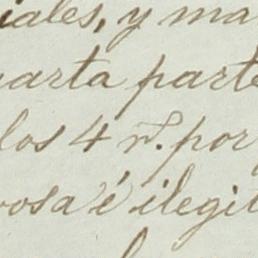 iales, y ma
uarta parte
los 4 rˢ. por
osa é ilegit